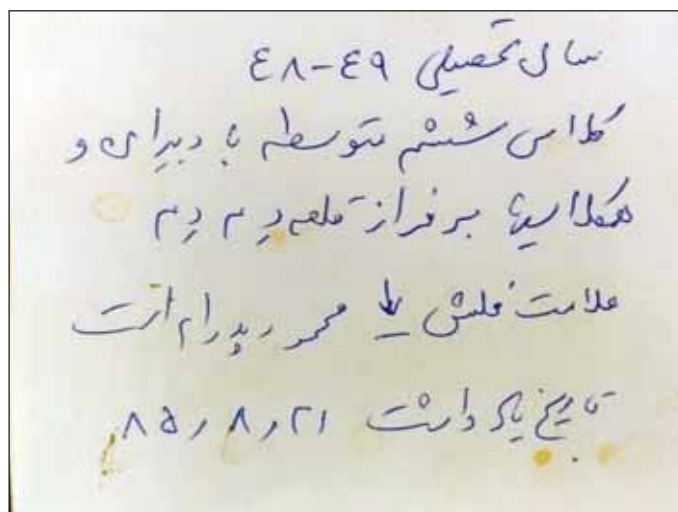 سال تحصیلی ٤٩-٤٨
کلاس ششم متوسطه با دبیران و
همکلاسیها برفراز قلعه دِم دِم
علامت فلش ↓ محمد پدرام است
تاریخ یادداشت ۸۵٫۸٫۲۱